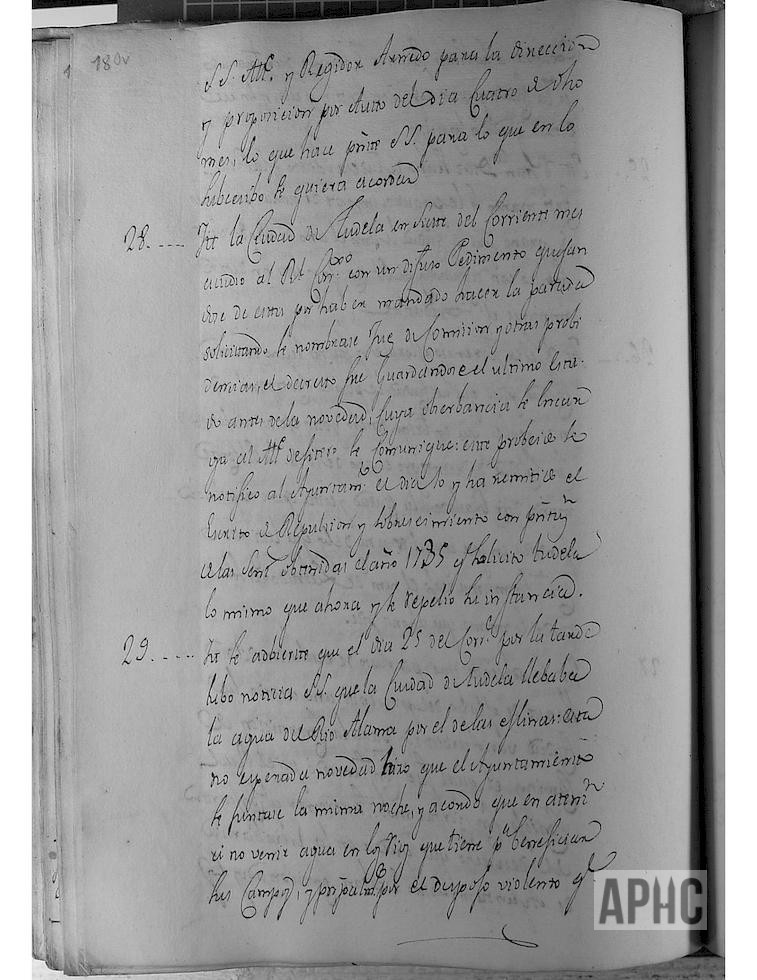 180v
SS. Alc.e y Regidor Arnedo para la direccion
y proposicion por Auto del dia Cuatro de dho
mes, lo que hace pnte SS. para lo que en lo
subcesibo se quiera acordar
28. .... Itt la Ciudad de Tudela en Siete del Corriente mes
acudio al Rl. Con con un difuso Pedimento quejan
dose de esta por haber mandado hacer la
solicitando se nombrase Juez de Comision y otras probi
dencias, el decreto fue Guardandose el ultimo Esta-
do antes de la novedad, Cuya obserbancia se
al Alc.e de fitero se Comunique: este probeido se
notifico al Ayuntam.to el dia 10 y ha remitido el
Escrito de Repulsion y con
de las Sent.s obtenidas el año 1735 q.e solicito tudela
lo mismo que ahora y se repelio su instancia.
29. .... Itt se adbierte que el dia 25 del Corr.e por la tarde
hubo noticia SS. que la Ciudad de tudela llebaba
la agua del Rio Alama por el de las eslinas: esta
no esperada novedad hizo que el Ayuntamiento
se juntase la misma noche, y acordo que en aten.n
a no venir agua en los Rios que tiene p.a beneficiar
sus Campos, y por el despojo violento q.e
APHC